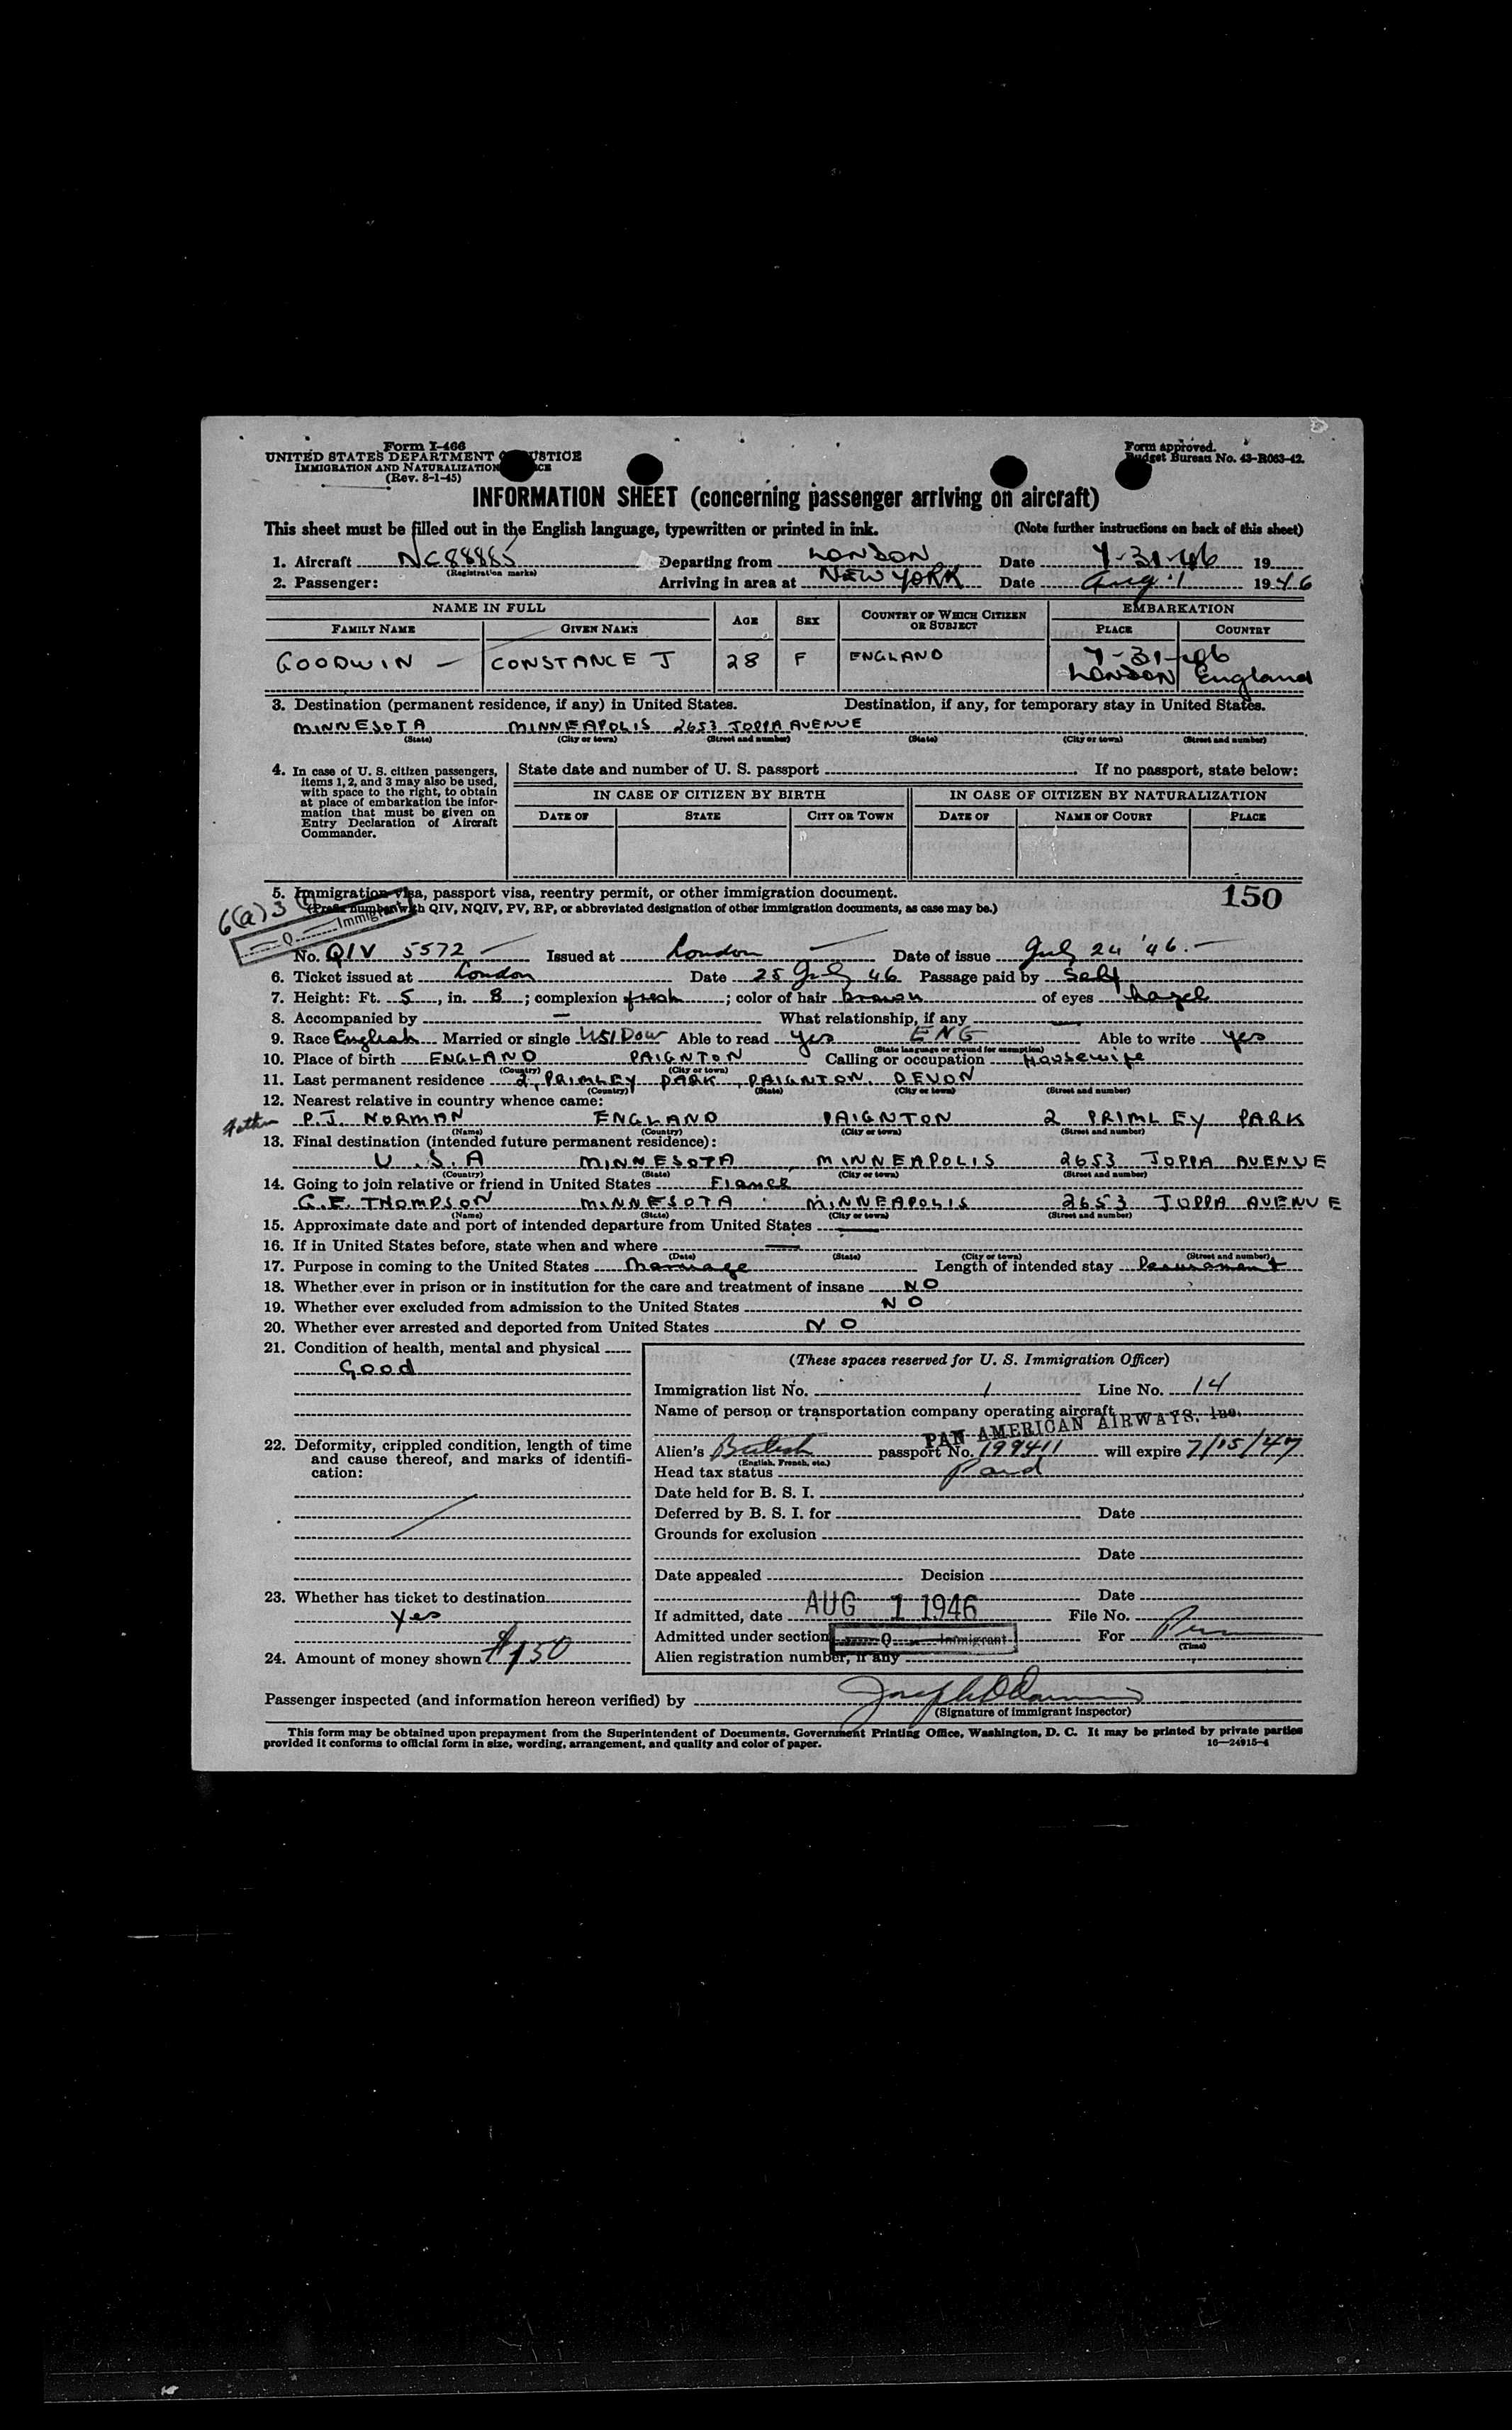 Form I-466
UNITED STATES DEPARTMENT OF JUSTICE
IMMIGRATION AND NATURALIZATION SERVICE
(Rev. 8-1-45)
Form approved.
Budget Bureau No. 43-R063-42.
INFORMATION SHEET (concerning passenger arriving on aircraft)
This sheet must be filled out in the English language, typewritten or printed in ink. (Note further instructions on back of this sheet)
1. Aircraft NC88885 Departing from LONDON Date 7-31-46 19
(Registration marks)
2. Passenger: Arriving in area at NEW YORK Date Aug 1 1946
NAME IN FULL AGE SEX COUNTRY OF WHICH CITIZEN OR SUBJECT EMBARKATION
FAMILY NAME GIVEN NAME PLACE COUNTRY
7-31-46
GOODWIN — CONSTANCE J 28 F ENGLAND LONDON England
3. Destination (permanent residence, if any) in United States. Destination, if any, for temporary stay in United States.
MINNESOTA MINNEAPOLIS 2653 JOPPA AVENUE
(State) (City or town) (Street and number) (State) (City or town) (Street and number)
4. In case of U. S. citizen passengers, items 1, 2, and 3 may also be used, with space to the right, to obtain at place of embarkation the information that must be given on Entry Declaration of Aircraft Commander.
State date and number of U. S. passport If no passport, state below:
IN CASE OF CITIZEN BY BIRTH IN CASE OF CITIZEN BY NATURALIZATION
DATE OF STATE CITY OR TOWN DATE OF NAME OF COURT PLACE
5. Immigration visa, passport visa, reentry permit, or other immigration document. 150
(Prefix number with QIV, NQIV, PV, RP, or abbreviated designation of other immigration documents, as case may be.)
6(a)3
Q Immigrant
No. QIV 5572 — Issued at London Date of issue July 24 '46. —
6. Ticket issued at London Date 25 July 46 Passage paid by Self
7. Height: Ft. 5, in. 8; complexion fresh; color of hair brown of eyes hazel
8. Accompanied by — What relationship, if any —
9. Race English Married or single WIDOW Able to read yes ENG Able to write yes
(State language or ground for exemption)
10. Place of birth ENGLAND PAIGNTON Calling or occupation Housewife
(Country) (City or town)
11. Last permanent residence 2, PRIMLEY PARK, PAIGNTON. DEVON
(Country) (State) (City or town) (Street and number)
12. Nearest relative in country whence came:
Father P.J. NORMAN ENGLAND PAIGNTON 2 PRIMLEY PARK
(Name) (Country) (City or town) (Street and number)
13. Final destination (intended future permanent residence):
U.S.A MINNESOTA MINNEAPOLIS 2653 JOPPA AVENUE
(Country) (State) (City or town) (Street and number)
14. Going to join relative or friend in United States Fiance
G.E. THOMPSON MINNESOTA MINNEAPOLIS 2653 JOPPA AVENUE
(Name) (State) (City or town) (Street and number)
15. Approximate date and port of intended departure from United States —
16. If in United States before, state when and where —
(Date) (State) (City or town) (Street and number)
17. Purpose in coming to the United States Marriage Length of intended stay Permanent
18. Whether ever in prison or in institution for the care and treatment of insane NO
19. Whether ever excluded from admission to the United States NO
20. Whether ever arrested and deported from United States NO
21. Condition of health, mental and physical
Good
22. Deformity, crippled condition, length of time and cause thereof, and marks of identification:
23. Whether has ticket to destination
Yes
24. Amount of money shown $150
(These spaces reserved for U. S. Immigration Officer)
Immigration list No. 1 Line No. 14
Name of person or transportation company operating aircraft
PAN AMERICAN AIRWAYS, Inc.
Alien's British passport No. 199411 will expire 7/15/47
(English, French, etc.)
Head tax status Paid
Date held for B. S. I.
Deferred by B. S. I. for Date
Grounds for exclusion
Date
Date appealed Decision
Date
If admitted, date AUG 1 1946 File No.
Admitted under section Q Immigrant For Perm
(Time)
Alien registration number, if any
Passenger inspected (and information hereon verified) by
(Signature of immigrant inspector)
This form may be obtained upon prepayment from the Superintendent of Documents, Government Printing Office, Washington, D. C. It may be printed by private parties
provided it conforms to official form in size, wording, arrangement, and quality and color of paper. 16—24915-4